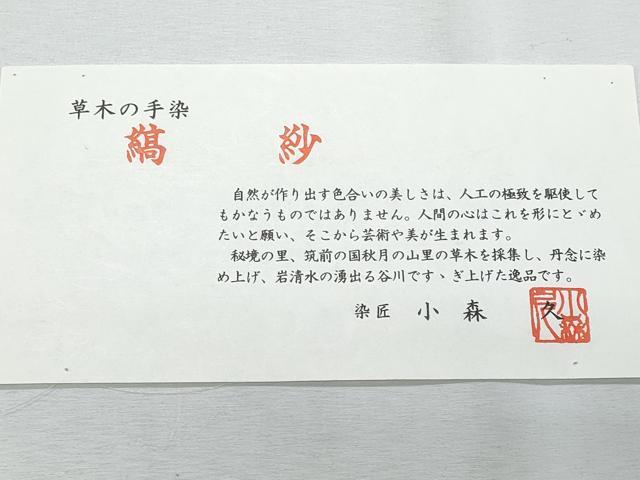 草木の手染
縞紗
自然が作り出す色合いの美しさは、人工の極致を駆使して
もかなうものではありません。人間の心はこれを形にとゞめ
たいと願い、そこから芸術や美が生まれます。
秘境の里、筑前の国秋月の山里の草木を採集し、丹念に染
め上げ、岩清水の湧出る谷川ですゝぎ上げた逸品です。
染匠 小森 久